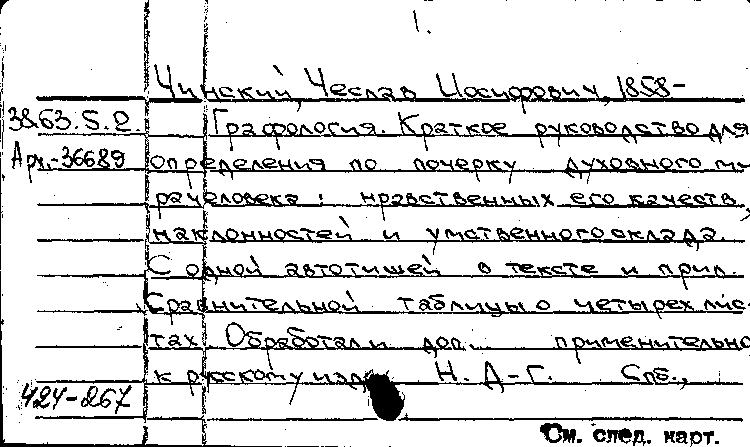 1.
Чинский, Чеслав Иосифович, 1858-
3863.5.2. Графология. Краткое руководство для
Арх.-36689 определения по почерку духовного ми-
рачеловека: нравственных его качеств,
наклонностей и умственного склада.
С одной автотипией в тексте и прил.
Сравнительной таблицы о четырех лис-
тах Обработал и доп. применительно
к русскому изд. Н. Д-Г. Спб.,
424-267
См. след. карт.